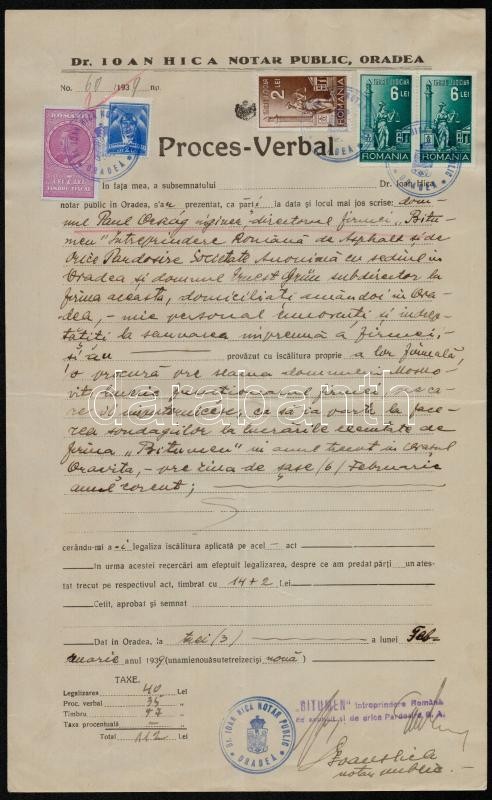 Dr. IOAN HICA NOTAR PUBLIC, ORADEA
No. 60 /1939 np.
2 LEI
ROMANIA
6 LEI
ROMANIA
6 LEI
ROMANIA
TIMBRU FISCAL
Proces-Verbal
In fața mea, a subsemnatului Dr. Ioan Hica,
notar public in Oradea, s'au prezentat, ca parți la data și locul mai jos scrise: dom-
nul Paul inginer, directorul firmei „Bitu-
men" Intreprindere Română de Asphalt și de
Orice Pardosire Societate Anonimă cu sediul in
Oradea și domnul Ernest Grün subdirector la
firma aceasta, domiciliați amândoi in Ora-
dea, - mie personal cunoscuți și indrep-
tățiți la semnarea impreună a firmei, -
și au provăzut cu iscălitura proprie a lor firmală,
o procură pe seama domnului Mosko-
vit funcționarul firmei pe ca-
re il imputernicesc, ca să ia parte la face-
rea sondagiilor la lucrările executate de
firma „Bitumen" in anul trecut in orașul
Oravița, - pe ziua de șase /6/ Februarie
anul corent;
darabanth
cerându-mi a -i legaliza iscălitura aplicată pe acel — act
In urma acestei recercări am efeptuit legalizarea, despre ce am predat părții un ates-
tat trecut pe respectivul act, timbrat cu 14+2 Lei
Cetit, aprobat și semnat
Dat in Oradea, la trei /3/ a lunei Feb-
ruarie anul 1939 (unamienouăsutetreizeciși nouă)
TAXE.
Legalizarea 40 Lei
Proc. verbal 35 „
Timbru 47 „
Taxa procentuală — „
Total 112 Lei
Dr. IOAN HICA NOTAR PUBLIC
ORADEA
„BITUMEN" Intreprindere Română
de asphalt si de orice Pardosire S. A.
Ioan Hica
notar public.